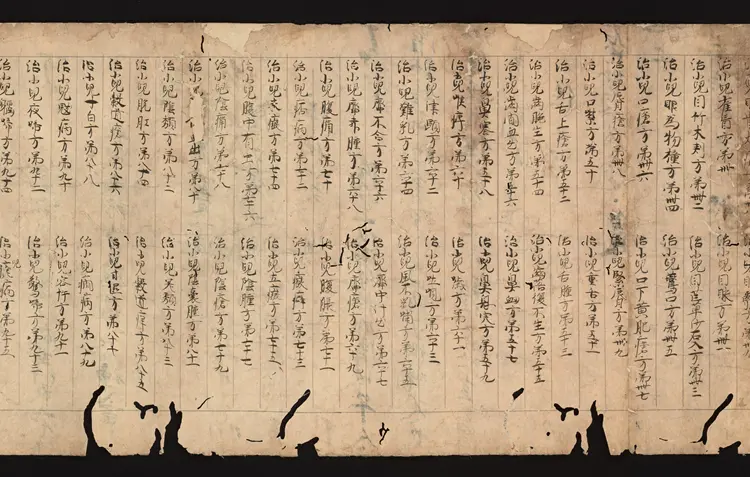 治小兒雀盲方第卌
治小兒目眼方第卌一
治小兒目竹木刺方第卌二
治小兒目芒草沙石入方第卌三
治小兒眼為物撞方第卌四
治小兒鷰口方第卌五
治小兒口瘡方第卌六
治小兒口下黄肥瘡方第卌七
治小兒脣瘡方第卌八
治小兒緊脣方第卌九
治小兒口禁方第五十
治小兒重舌方第五十一
治小兒舌上瘡方第五十二
治小兒舌腫方第五十三
治小兒齒晚生方第五十四
治小兒齒落復不生方第五十五
治小兒齒間血出方第五十六
治小兒鼻衄方第五十七
治小兒鼻塞方第五十八
治小兒鼻息肉方第五十九
治小兒喉痺方第六十
治小兒噦方第六十一
治小兒津頤方第六十二
治小兒吐哯方第六十三
治小兒難乳方第六十四
治小兒方第六十五
治小兒臍不合方第六十六
治小兒臍中汁出方第六十七
治小兒臍赤腫方第六十八
治小兒臍瘡方第六十九
治小兒腹痛方第七十
治小兒腹脹方第七十一
治小兒病方第七十二
治小兒痰癖方第七十三
治小兒方第七十四
治小兒方第七十五
治小兒腹中有虫方第七十六
治小兒陰腫方第七十七
治小兒陰痛方第七十八
治小兒陰瘡方第七十九
治小兒出方第八十
治小兒陰囊腫方第八十一
治小兒陰頽方第八十二
治小兒差頽方第八十三
治小兒脱肛方第八十四
治小兒穀道痒方第八十五
治小兒穀道瘡方第八十六
治小兒方第八十七
治小兒寸白方第八十八
治小兒癇病方第八十九
治小兒魃病方第九十
治小兒客忤方第九十一
治小兒夜啼方第九十二
治小兒驚啼方第九十三
治小兒啼方第九十四
治小兒瘧病方第九十五